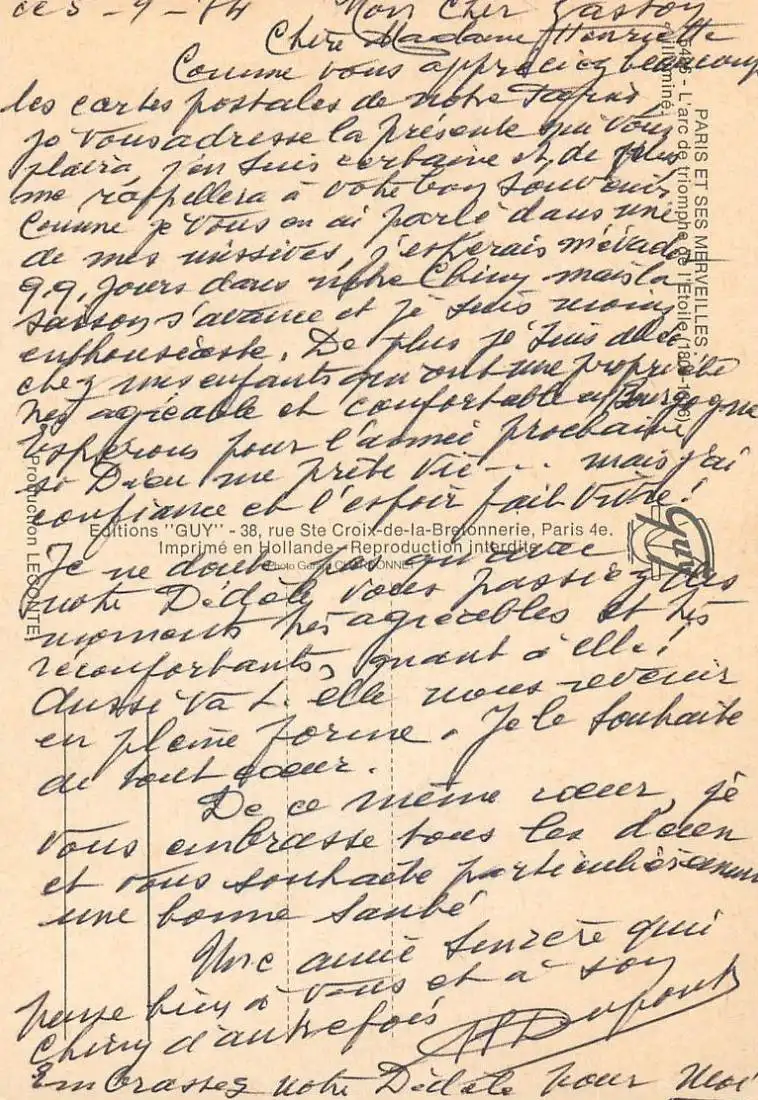 ce 5-9-84 Mon Cher Gaston
Chère Madame Henriette
Comme vous appréciez beaucoup
les cartes postales de notre Paris,
je vous adresse la présente qui vous
plaira, j'en suis certaine et, de plus
me rappellera à votre bon souvenir
Comme je vous en ai parlé dans une
de mes missives, j'espérais m'évader
qq. jours dans notre Chiny mais la
saison s'avance et je suis moins
enthousiaste. De plus je suis allée
chez mes enfants qui ont une propriété
très agréable et confortable en Bourgogne
Espérons pour l'année prochaine
si Dieu me prête vie --- mais j'ai
confiance et l'espoir fait vivre!
Je ne doute pas qu'avec
notre Dédèle vous passiez des
moments très agréables et très
réconfortants, quant à elle!
Aussi va t. elle nous revenir
en pleine forme. Je le souhaite
de tout coeur.
De ce même coeur, je
vous embrasse tous les deux
et vous souhaite particulièrement
une bonne santé
Une amie sincère qui
pense bien à vous et à son
Chiny d'autrefois
Dupont
Embrassez notre Dédèle pour moi
PARIS ET SES MERVEILLES.
L'arc de triomphe de l'Etoile
illuminé.
Production LECONTE
Editions "GUY" - 38, rue Ste Croix-de-la-Bretonnerie, Paris 4e.
Imprimé en Hollande - Reproduction interdite
Photo
Guy